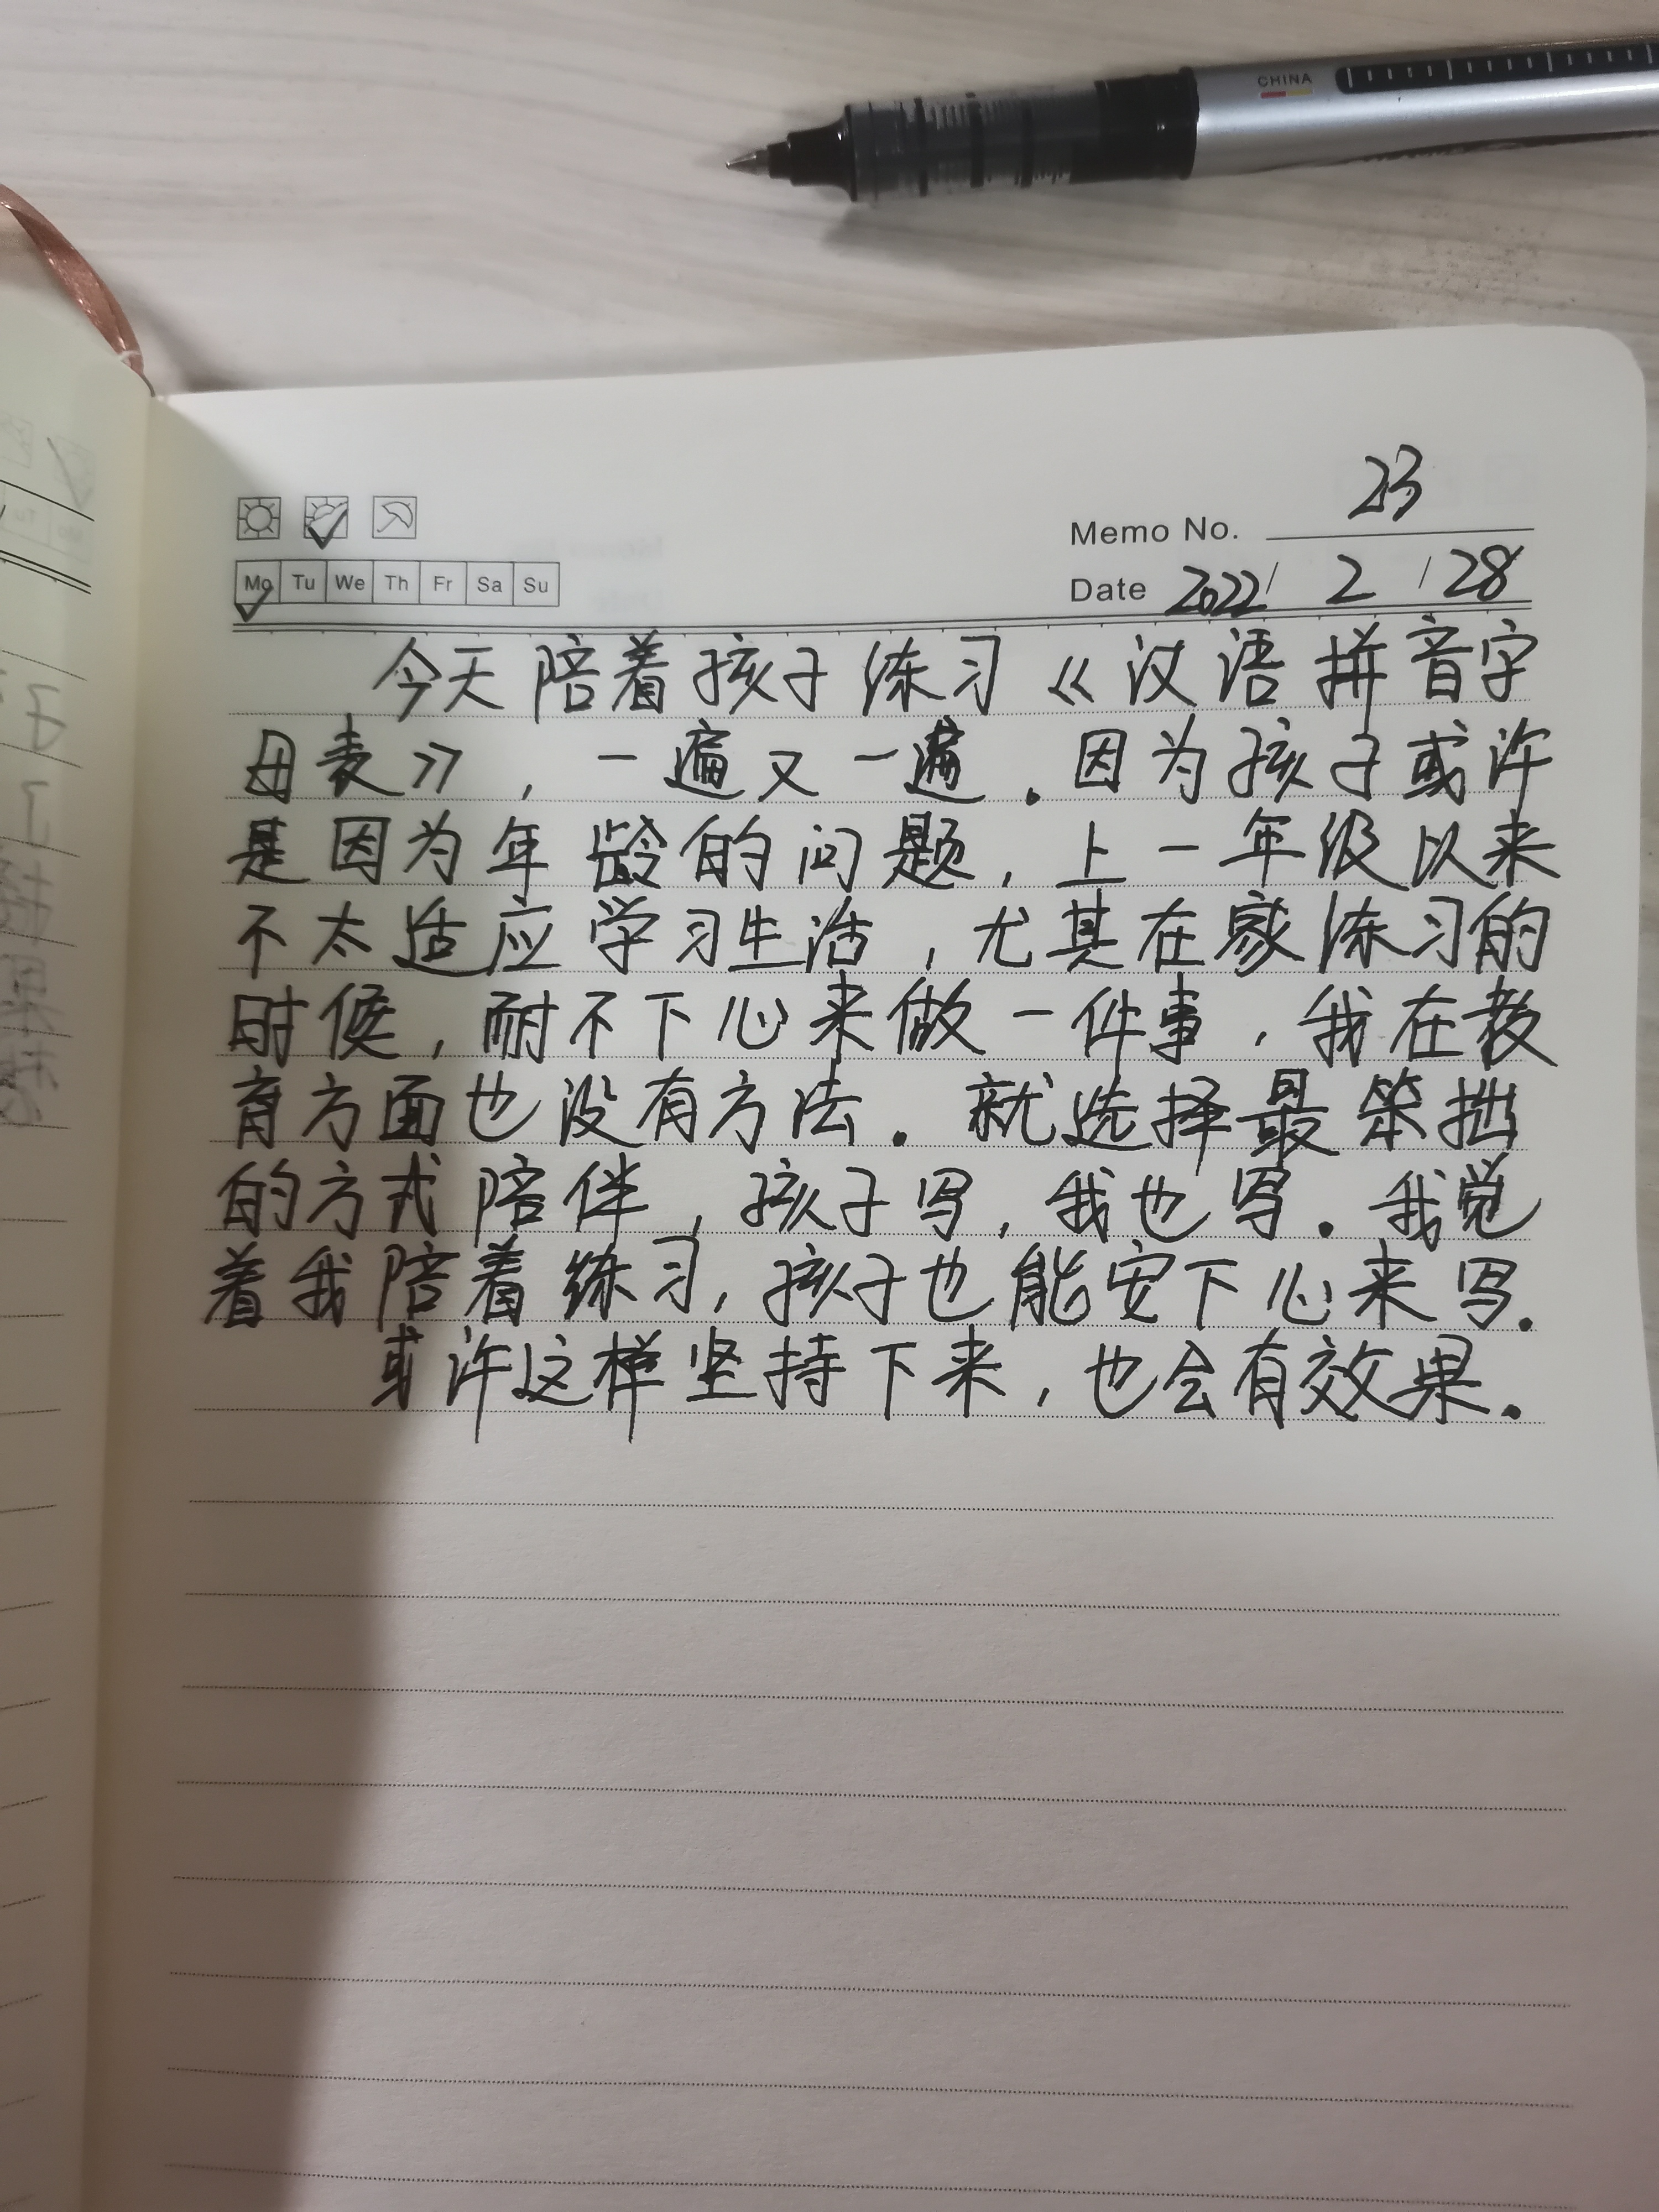 CHINA
Memo No. 23
Mo Tu We Th Fr Sa Su
Date 2022/ 2 / 28
今天陪着孩子练习《汉语拼音字
母表》，一遍又一遍.因为孩子或许
是因为年龄的问题，上一年级以来
不太适应学习生活，尤其在家练习的
时候，耐不下心来做一件事，我在教
育方面也没有方法.就选择最笨拙
的方式陪伴，孩子写，我也写.我觉
着我陪着练习，孩子也能安下心来写.
或许这样坚持下来，也会有效果.